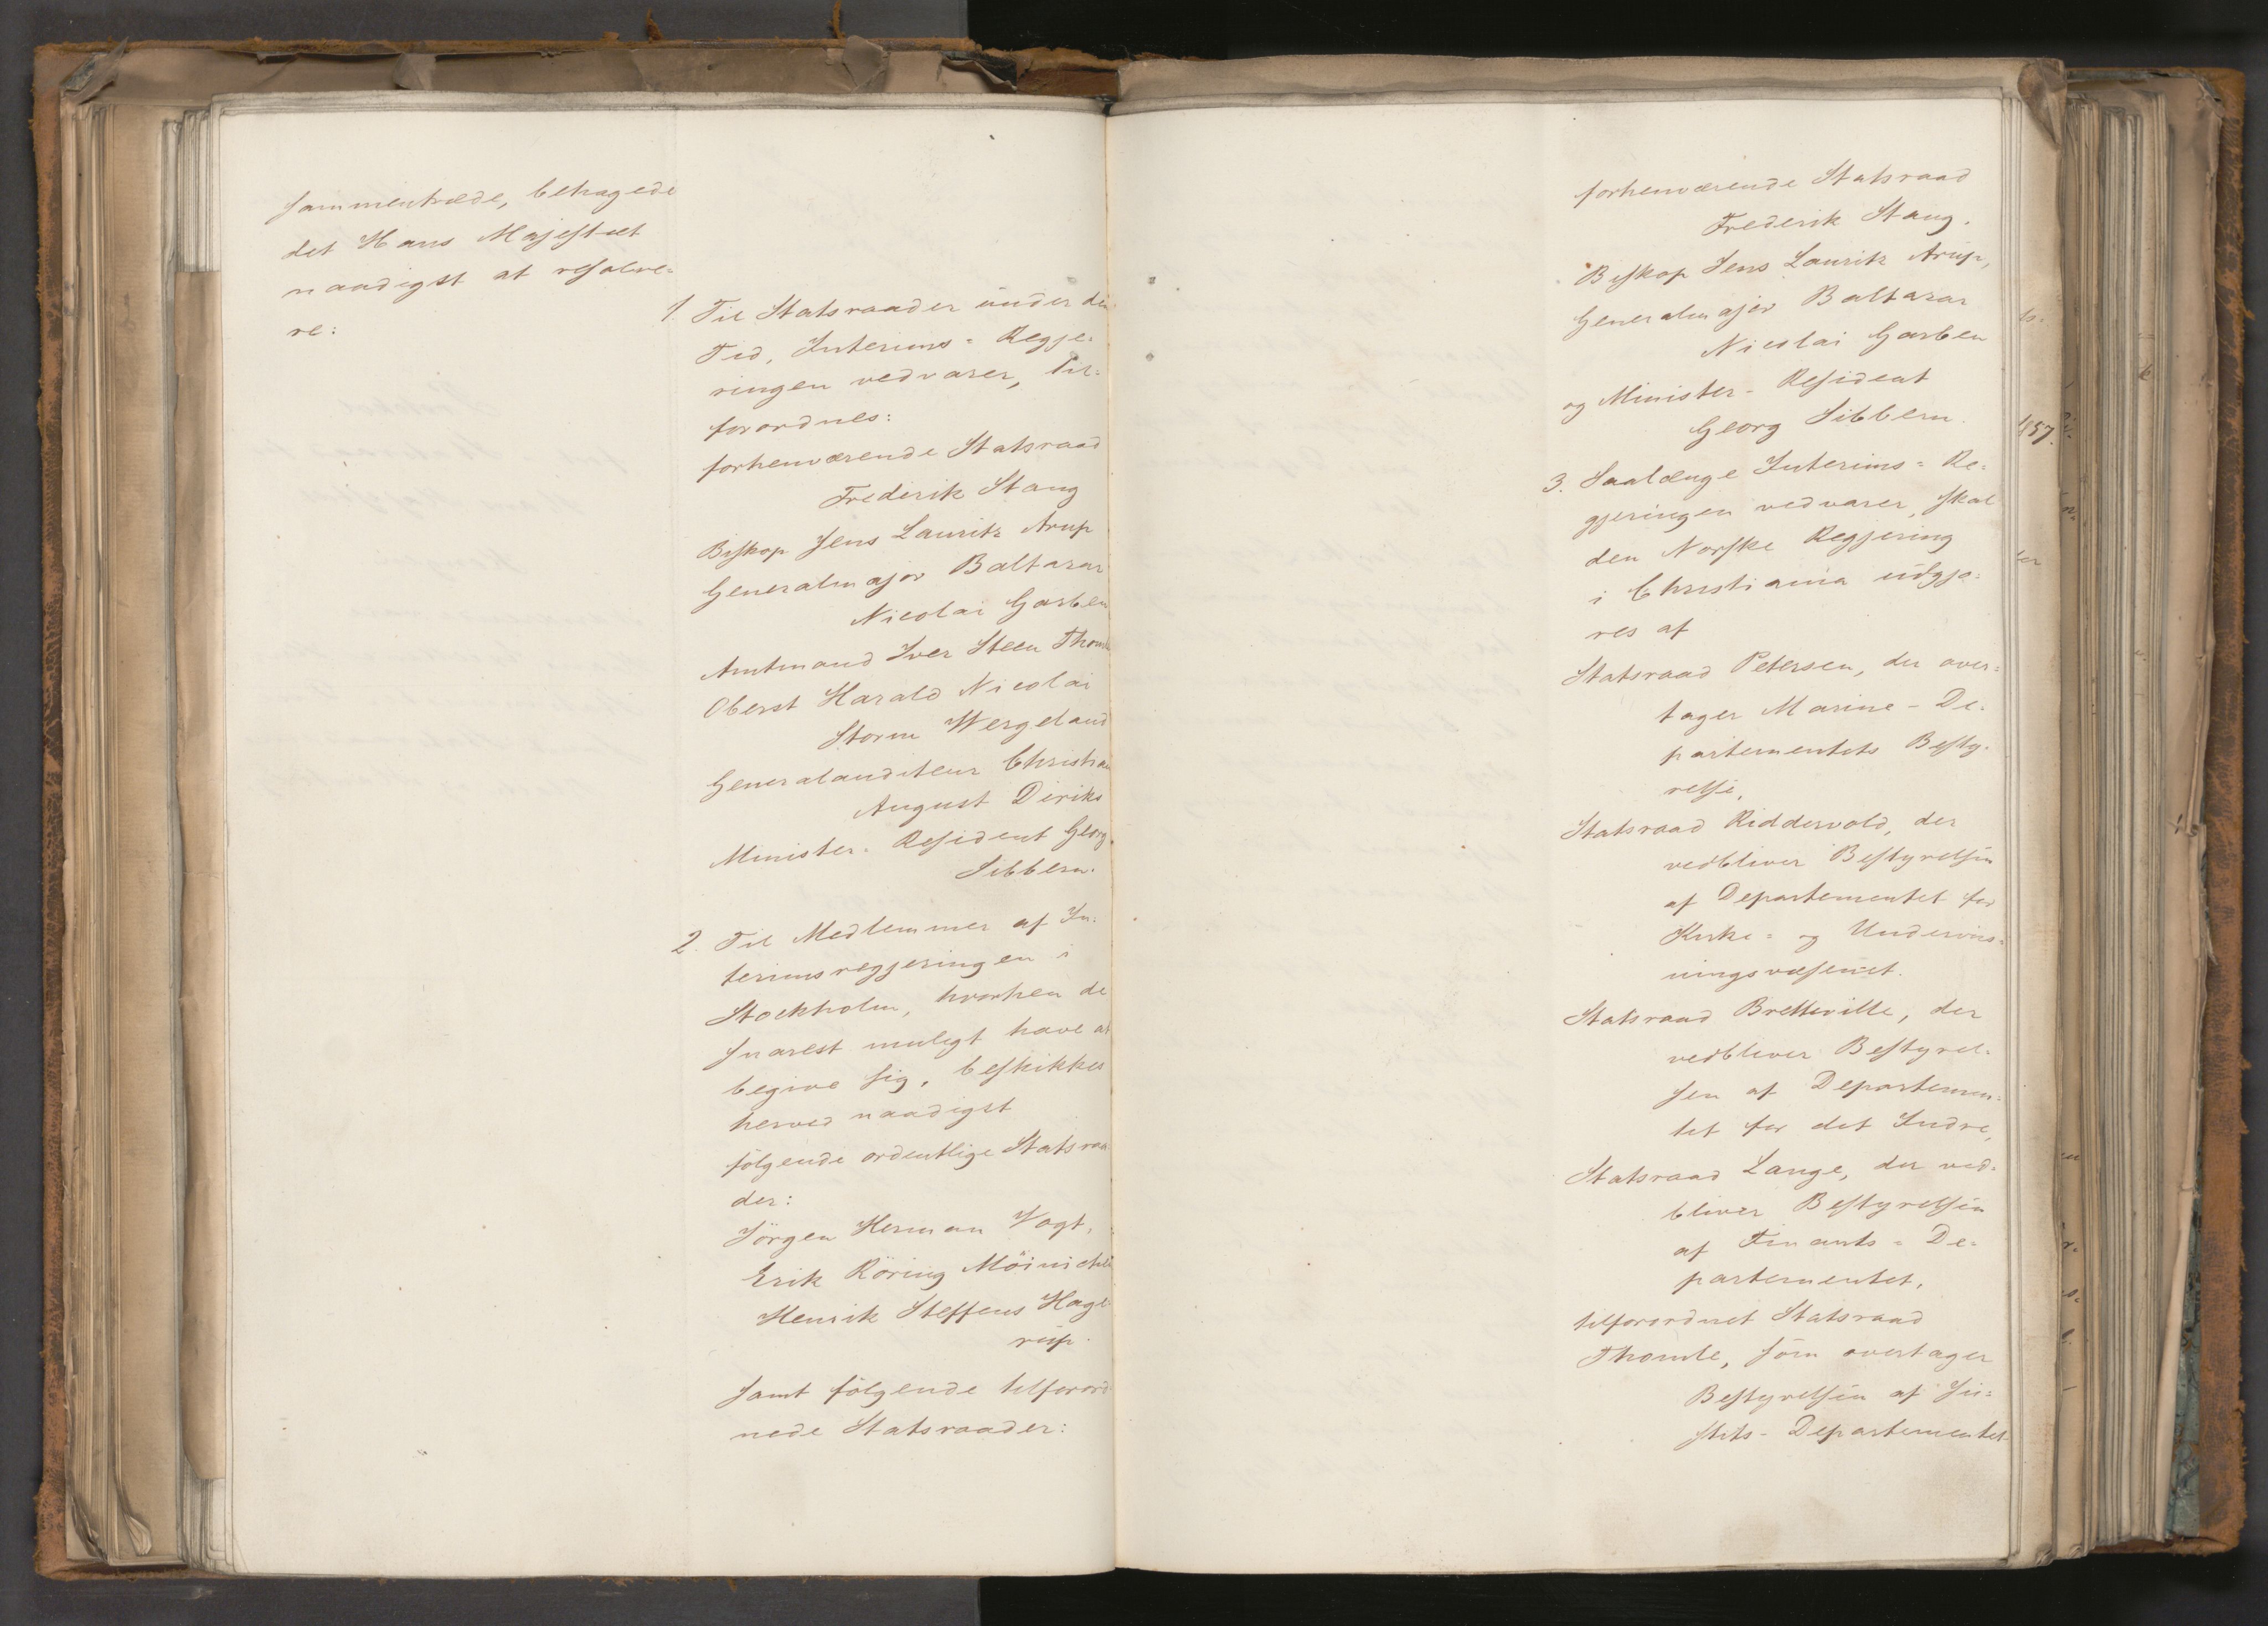 sammentræde, behagede
det Hans Majestæt
naadigst at resolve-
re:
1. Til Statsraader under den
Tid, Interims-Regje-
ringen vedvarer, til-
forordnes:
forhenværende Statsraad
Frederik Stang
Biskop Jens Lauritz Arup
Generalmajor Baltazar
Nicolai Garben
Amtmand Iver Steen Thomle
Oberst Harald Nicolai
Storm Wergeland
Generalauditeur Christian
August Diriks
Minister-Resident Georg
Sibbern.
2. Til Medlemmer af In-
terimsregjeringen i
Stockholm, hvorhen de
snarest muligt have at
begive sig, beskikkes
herved naadigst
følgende ordentlige Statsraa-
der:
Jörgen Herman Vogt,
Erik Röring Möinichen
Henrik Steffens Hage-
rup.
samt følgende tilforord-
nede Statsraader:
forhenværende Statsraad
Frederik Stang,
Biskop Jens Lauritz Arup,
Generalmajor Baltazar
Nicolai Garben
og Minister-Resident
Georg Sibbern.
3. Saalænge Interims-Re-
gjeringen vedvarer, skal
den Norske Regjering
i Christiania udgjø-
res af
Statsraad Petersen, der over-
tager Marine-De-
partementets Besty-
relse,
Statsraad Riddervold, der
vedbliver Bestyrelsen
af Departementet for
Kirke- og Underviis-
ningsvæsenet.
Statsraad Bretteville, der
vedbliver Bestyrel-
sen af Departemen-
tet for det Indre,
Statsraad Lange, der ved-
bliver Bestyrelsen
af Finants-De-
partementet,
tilforordnet Statsraad
Thomle, som overtager
Bestyrelsen af Ju-
stits-Departementet
1857.